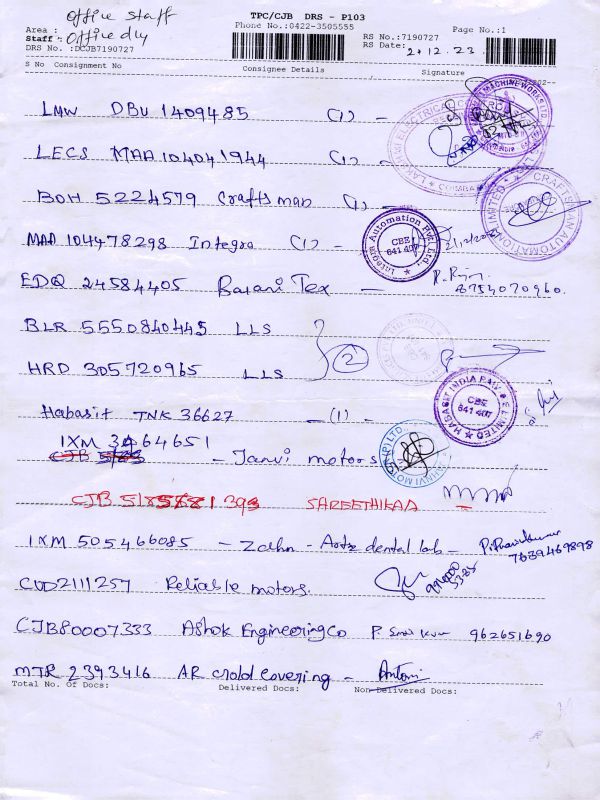 Office Staff
TPC/CJB DRS - P103
Phone No.:0422-3505555
Area :
Staff : Office dly
DRS No. :DCJB7190727
RS No.:7190727
Page No.:1
RS Date: 2.12.23
S No Consignment No Consignee Details Signature
LMW DBU 1409485 (1) -
LECS MAA 104041944 (1) -
BOH 5224579 Craftsman (1) -
MAA 104478298 Integra (1) -
EDQ 24584405 Barani Tex - 8754070960.
BLR 5550840445 LLS
HRD 305720965 LLS (2)
Habasit TNK 36627 - (1) -
IXM 3464651 - Janvi motors
CJB 5185881393 SAREETHIKAA
IXM 505466085 - Zahn - Artz dental lab - 7639469898
CUD2111257 Reliable motors.
CJB80007333 Ashok Engineering Co 962651690
MTR 2393416 AR Gold Covering - Antoni
Total No. Of Docs: Delivered Docs: Non Delivered Docs:
CBE
641 407
HABASIT INDIA
CBE
641 407